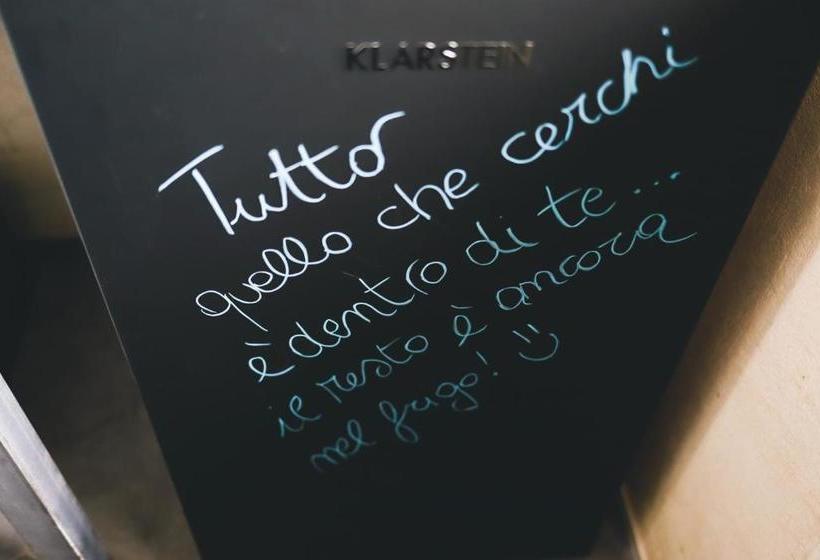 KLARSTEIN
Tutto
quello che cerchi
è dentro di te...
il resto è ancora
nel frigo! :)